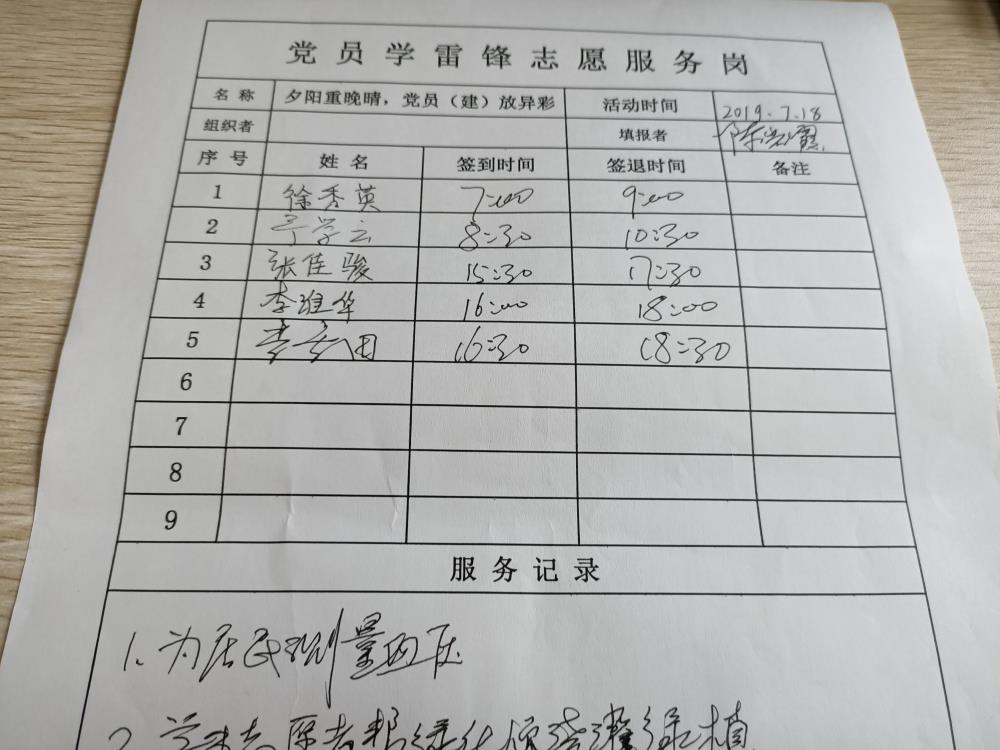 党员学雷锋志愿服务岗
名称 夕阳重晚晴，党员（建）放异彩 活动时间 2019.7.18
组织者 填报者
序号 姓名 签到时间 签退时间 备注
1 徐秀英 7:00 9:00
2 于学云 8:30 10:30
3 张佳骏 15:30 17:30
4 李维华 16:00 18:00
5 16:30 18:30
6
7
8
9
服务记录
1、为居民测量血压
2 志愿者帮绿化浇灌绿植